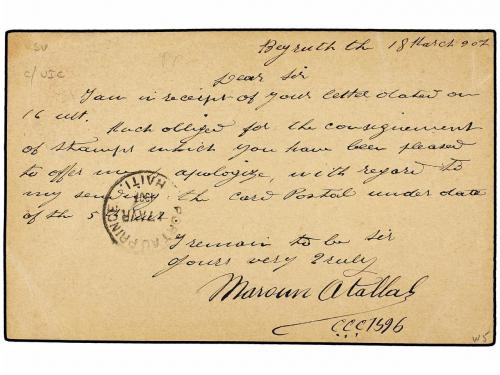 SV
C/ VIC
Beyruth th 18 March 907
Dear Sir
I am in receipt of your letter dated on
16 ult. Much obliged for the consignement
of stamps which you have been pleased
to offer me apologize, with regard to
my sending the card Postal under date
of the 5
PORT AU PRINCE
HAITI
I remain to be Sir
Yours very Truly
Maroun Atallah
CCC1596
W5